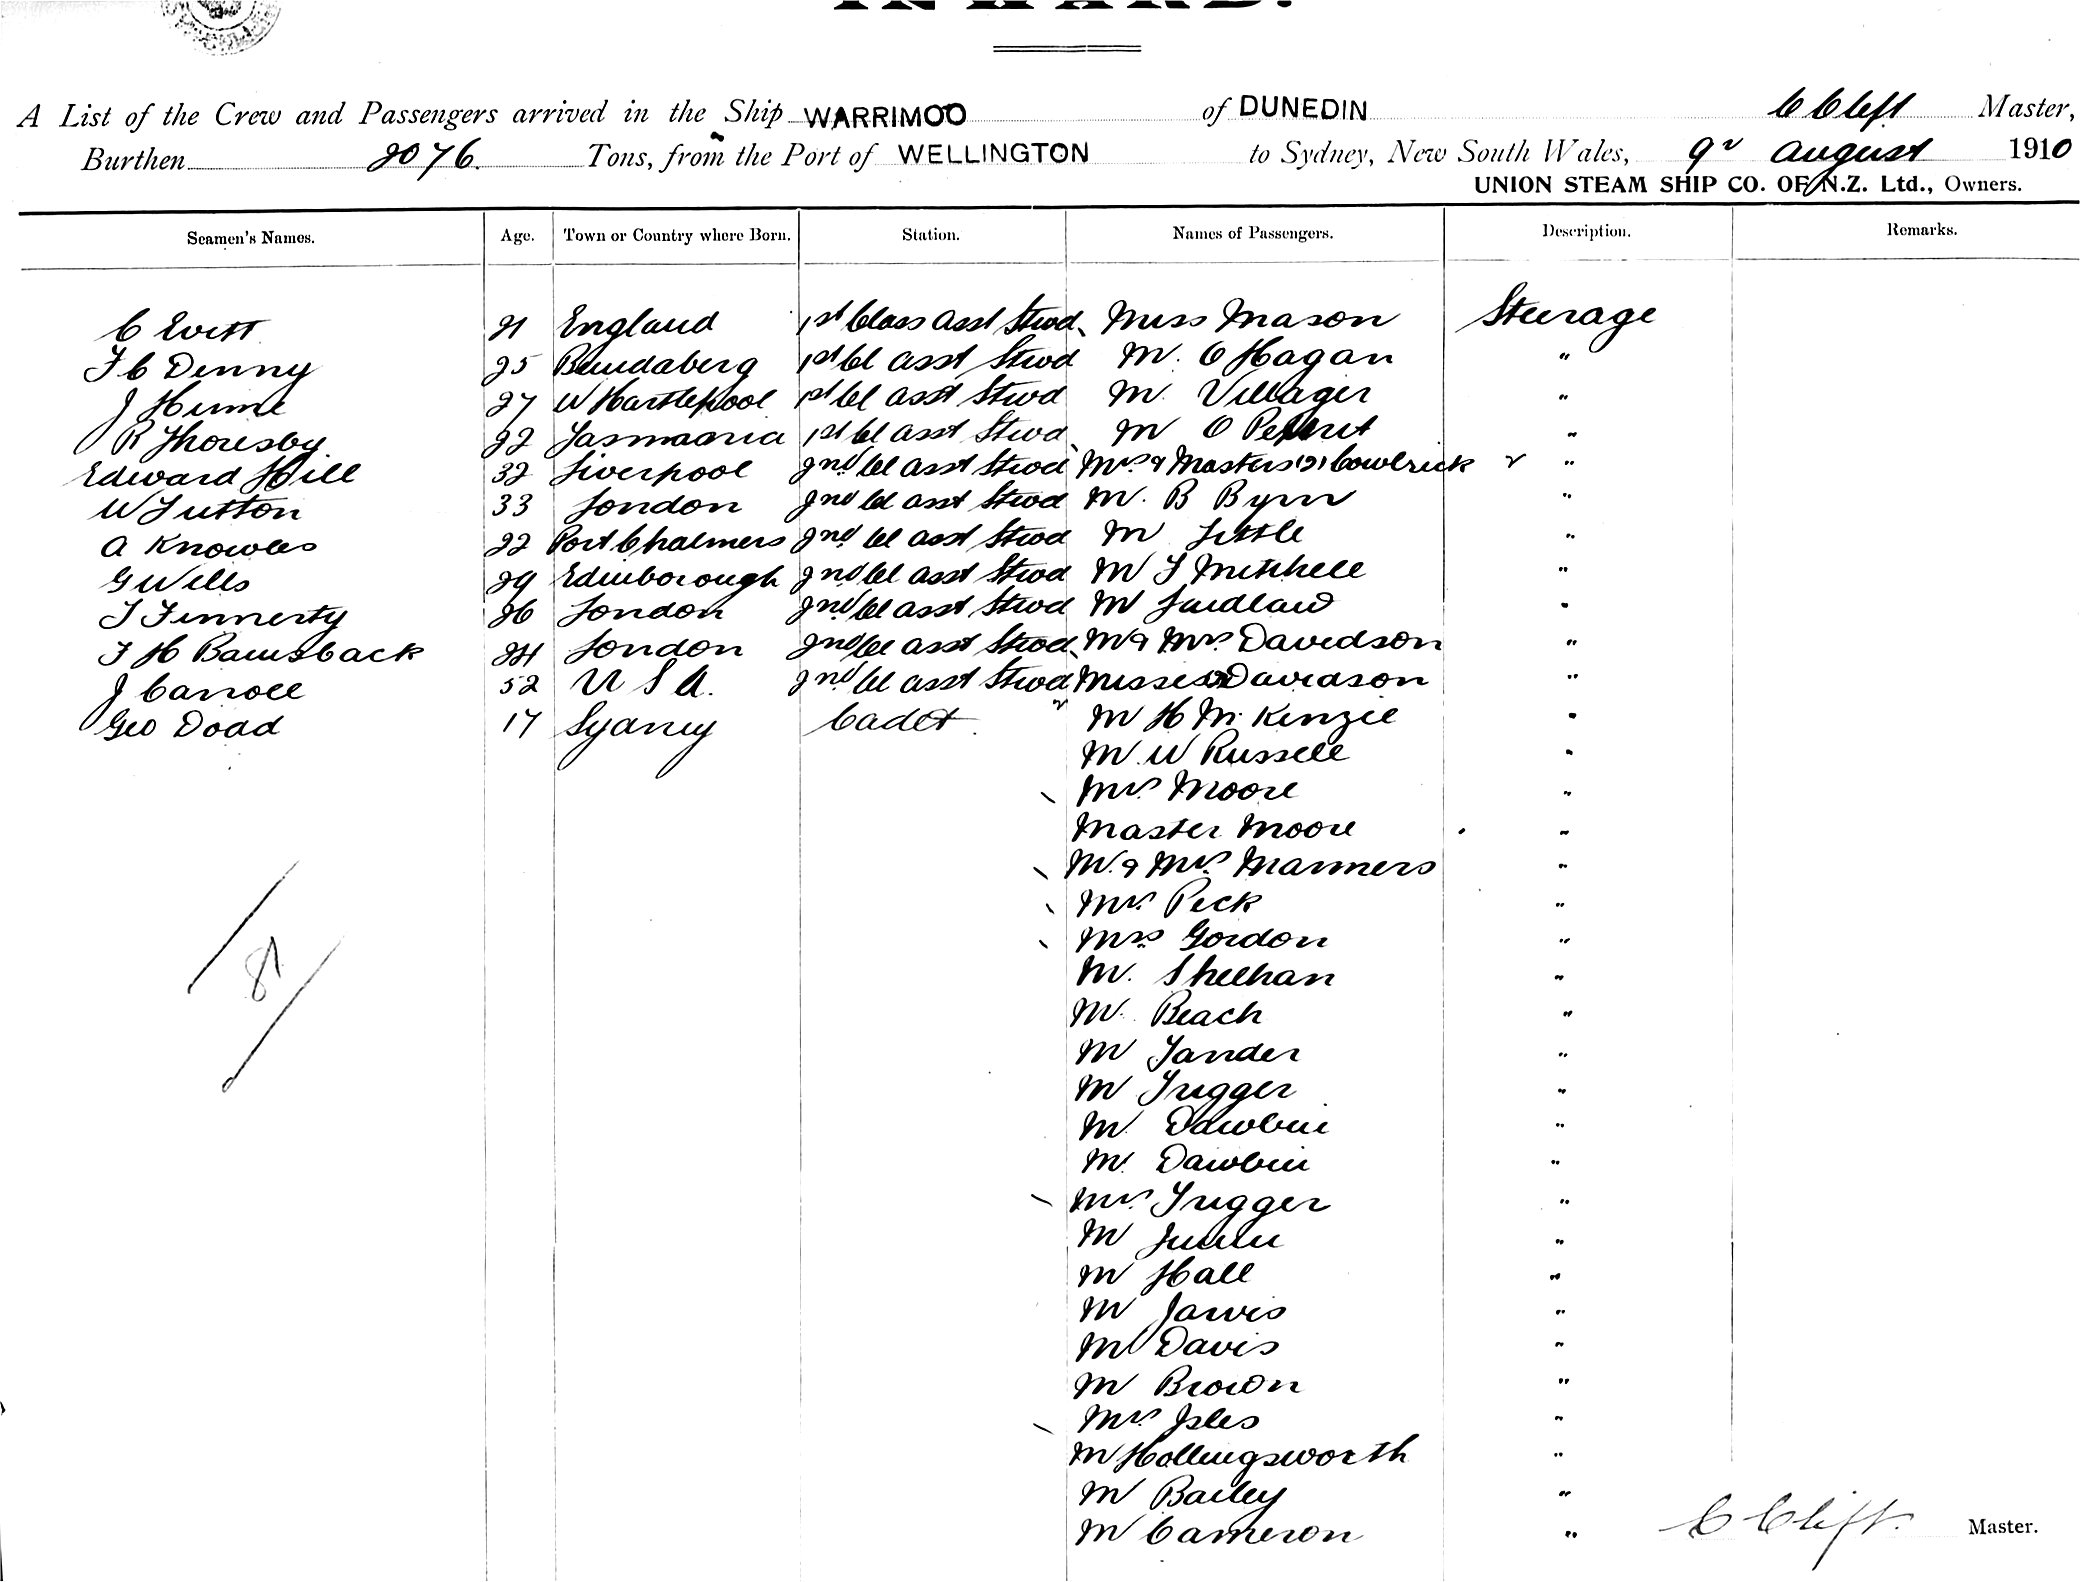 INWARD.
A List of the Crew and Passengers arrived in the Ship WARRIMOO of DUNEDIN C Clift Master,
Burthen 2076. Tons, from the Port of WELLINGTON to Sydney, New South Wales, 9 August 1910
UNION STEAM SHIP CO. OF N.Z. Ltd., Owners.
Seamen's Names. Age. Town or Country where Born. Station. Names of Passengers. Description. Remarks.
C Evett 21 England 1st Class asst Stwd Miss Mason Steerage
F C Denny 25 Bundaberg 1st Cl asst Stwd M. O Hagan "
J Hume 27 W Hartlepool 1st Cl asst Stwd M. Villager "
R Thoresby 22 Tasmania 1st Cl asst Stwd M O "
Edward Hill 32 Liverpool 2nd Cl asst Stwd Mrs & Masters (2) Cowlrick "
W Sutton 33 London 2nd Cl asst Stwd M. B Byrn "
A Knowles 22 Port Chalmers 2nd Cl asst Stwd M Little "
G Wills 29 Edinborough 2nd Cl asst Stwd M F Mitchell "
T Finnerty 26 London 2nd Cl asst Stwd M Laidlaw "
F H Barnsback 24 London 2nd Cl asst Stwd M & Mrs Davidson "
J Carroll 52 U S A. 2nd Cl asst Stwd Misses Davidson "
Geo Doad 17 Sydney Cadet M H McKenzie "
M. W Russell "
Mrs Moore "
Master Moore "
M. & Mrs. Manners "
Mrs Peck "
Mrs Gordon "
M. Sheehan "
M. Beach "
M Tander "
M Trigger "
M. Dawbin "
M. Dawbin "
Mrs. Trigger "
M "
M Hall "
M Jarvis "
M Davis "
M Brown "
Mrs Isles "
M Hollingsworth "
M Bailey "
M Cameron " C Clift. Master.
8